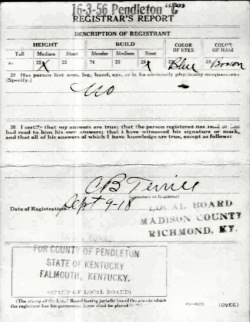 16-3-56 Pendleton
REGISTRAR'S REPORT
DESCRIPTION OF REGISTRANT
HEIGHT BUILD COLOR OF EYES COLOR OF HAIR
Tall Medium Short Slender Medium Stout
X X Blue Brown
29 Has person lost arm, leg, hand, eye, or is he obviously physically
(Specify.)
No
30 I certify that my answers are true; that the person registered has read or has
had read to him his own answers; that I have witnessed his signature or mark,
and that all of his answers of which I have knowledge are true, except as follows:
C B Terrill
Date of Registration Sept 9-18
LOCAL BOARD
MADISON COUNTY
RICHMOND, KY.
FOR COUNTY OF PENDLETON
STATE OF KENTUCKY
FALMOUTH, KENTUCKY.
(STAMP OF LOCAL BOARD)
(The stamp of the Local Board having jurisdiction of the area in which
the registrant has his permanent home shall be placed in this box.)
(OVER)